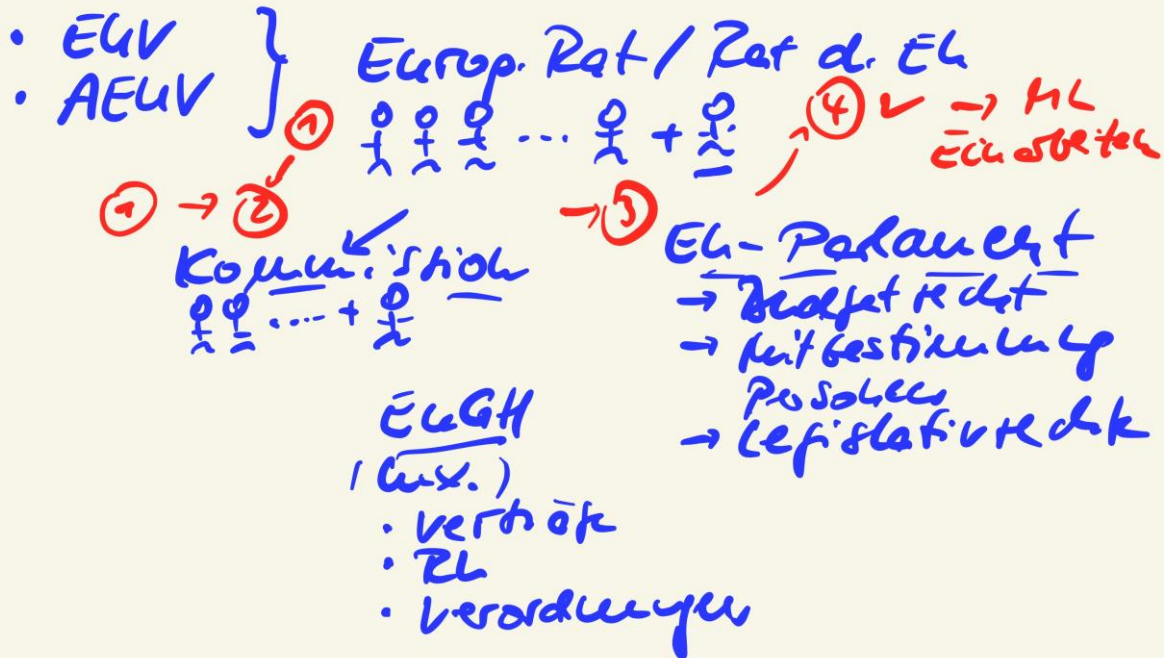 • EUV
• AEUV
Europ. Rat / Rat d. EU
① ... + ④ ✓ → ML
Einarbeiten
① → ② → ③
Kommission
.... +
EU-Parlament
→ Budgetrecht
→ Mitbestimmung
Personen
→ Legislativrechte
EuGH
(Lux.)
• Verträge
• RL
• Verordnungen